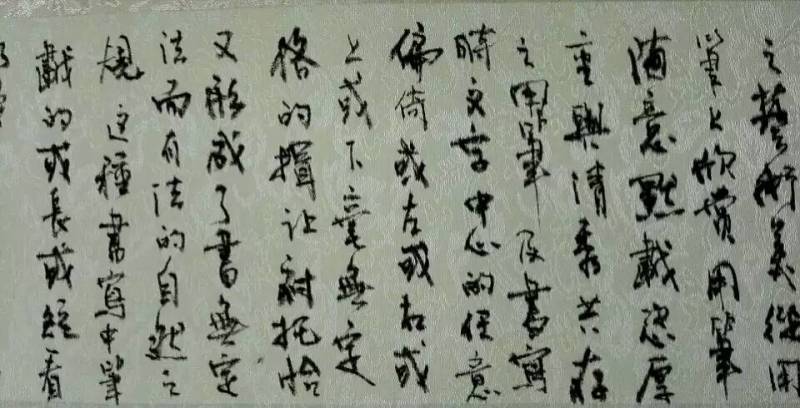 之藝術美從用
筆上欣賞用筆
随意點載浓厚
重與清秀共存
之用筆及書寫
時文字中心的任意
偏倚或左或右或
上或下毫無字
格的揖让衬托恰
又形成了書無定
法而有法的自然之
規这種書寫中筆
劃的或長或短看